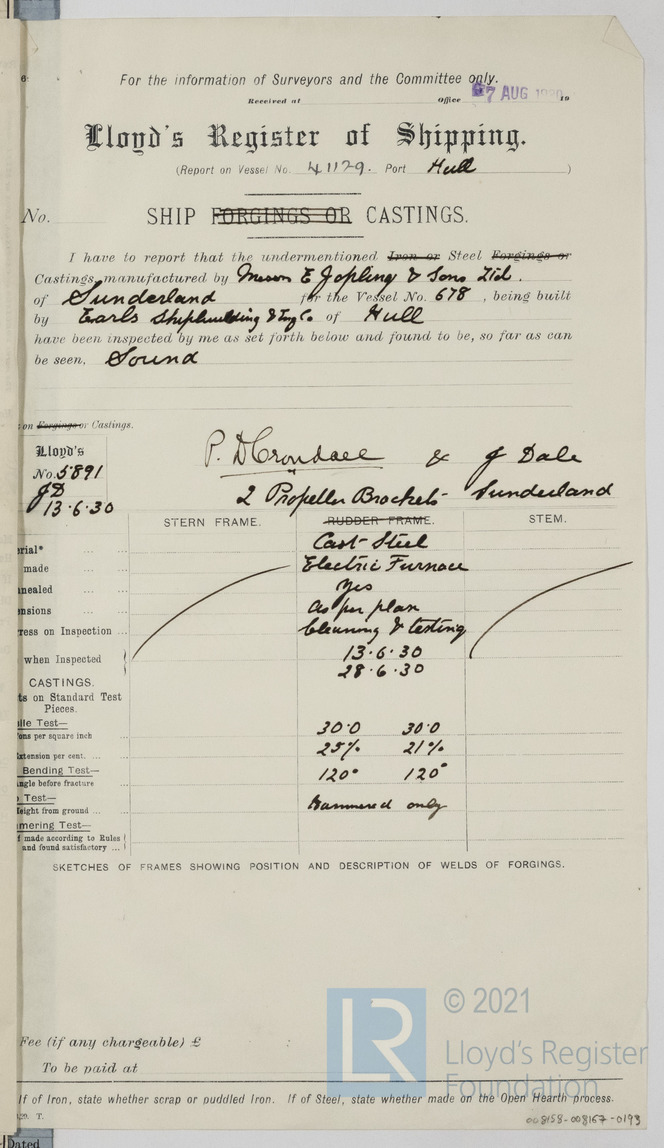 For the information of Surveyors and the Committee only.
Received at Office 7 AUG 1930 19
Lloyd's Register of Shipping.
(Report on Vessel No. 41129. Port Hull )
No. SHIP FORGINGS OR CASTINGS.
I have to report that the undermentioned Iron or Steel Forgings or
Castings, manufactured by Messrs E Jopling & Sons Ltd.
of Sunderland for the Vessel No. 678, being built
by Earls Shipbuilding & Eng Co of Hull
have been inspected by me as set forth below and found to be, so far as can
be seen, Sound
on Forgings or Castings.
Lloyd's
No. 5891
JD
13.6.30
P. D Crondace & J Dale
2 Propeller Brackets Sunderland
STERN FRAME. RUDDER FRAME. STEM.
erial* Cast Steel
made Electric Furnace
nealed Yes
ensions As per plan
ress on Inspection Cleaning & testing
when Inspected 13.6.30
28.6.30
CASTINGS.
ts on Standard Test
Pieces.
ile Test—
ons per square inch 30.0 30.0
Extension per cent. 25% 21%
Bending Test—
Angle before fracture 120° 120°
p Test—
Height from ground Hammered only
mering Test—
f made according to Rules
and found satisfactory
SKETCHES OF FRAMES SHOWING POSITION AND DESCRIPTION OF WELDS OF FORGINGS.
Fee (if any chargeable) £ :
To be paid at
If of Iron, state whether scrap or puddled Iron. If of Steel, state whether made on the Open Hearth process.
T.
LR
© 2021
Lloyd's Register
Foundation
008158-008167-0193
Dated